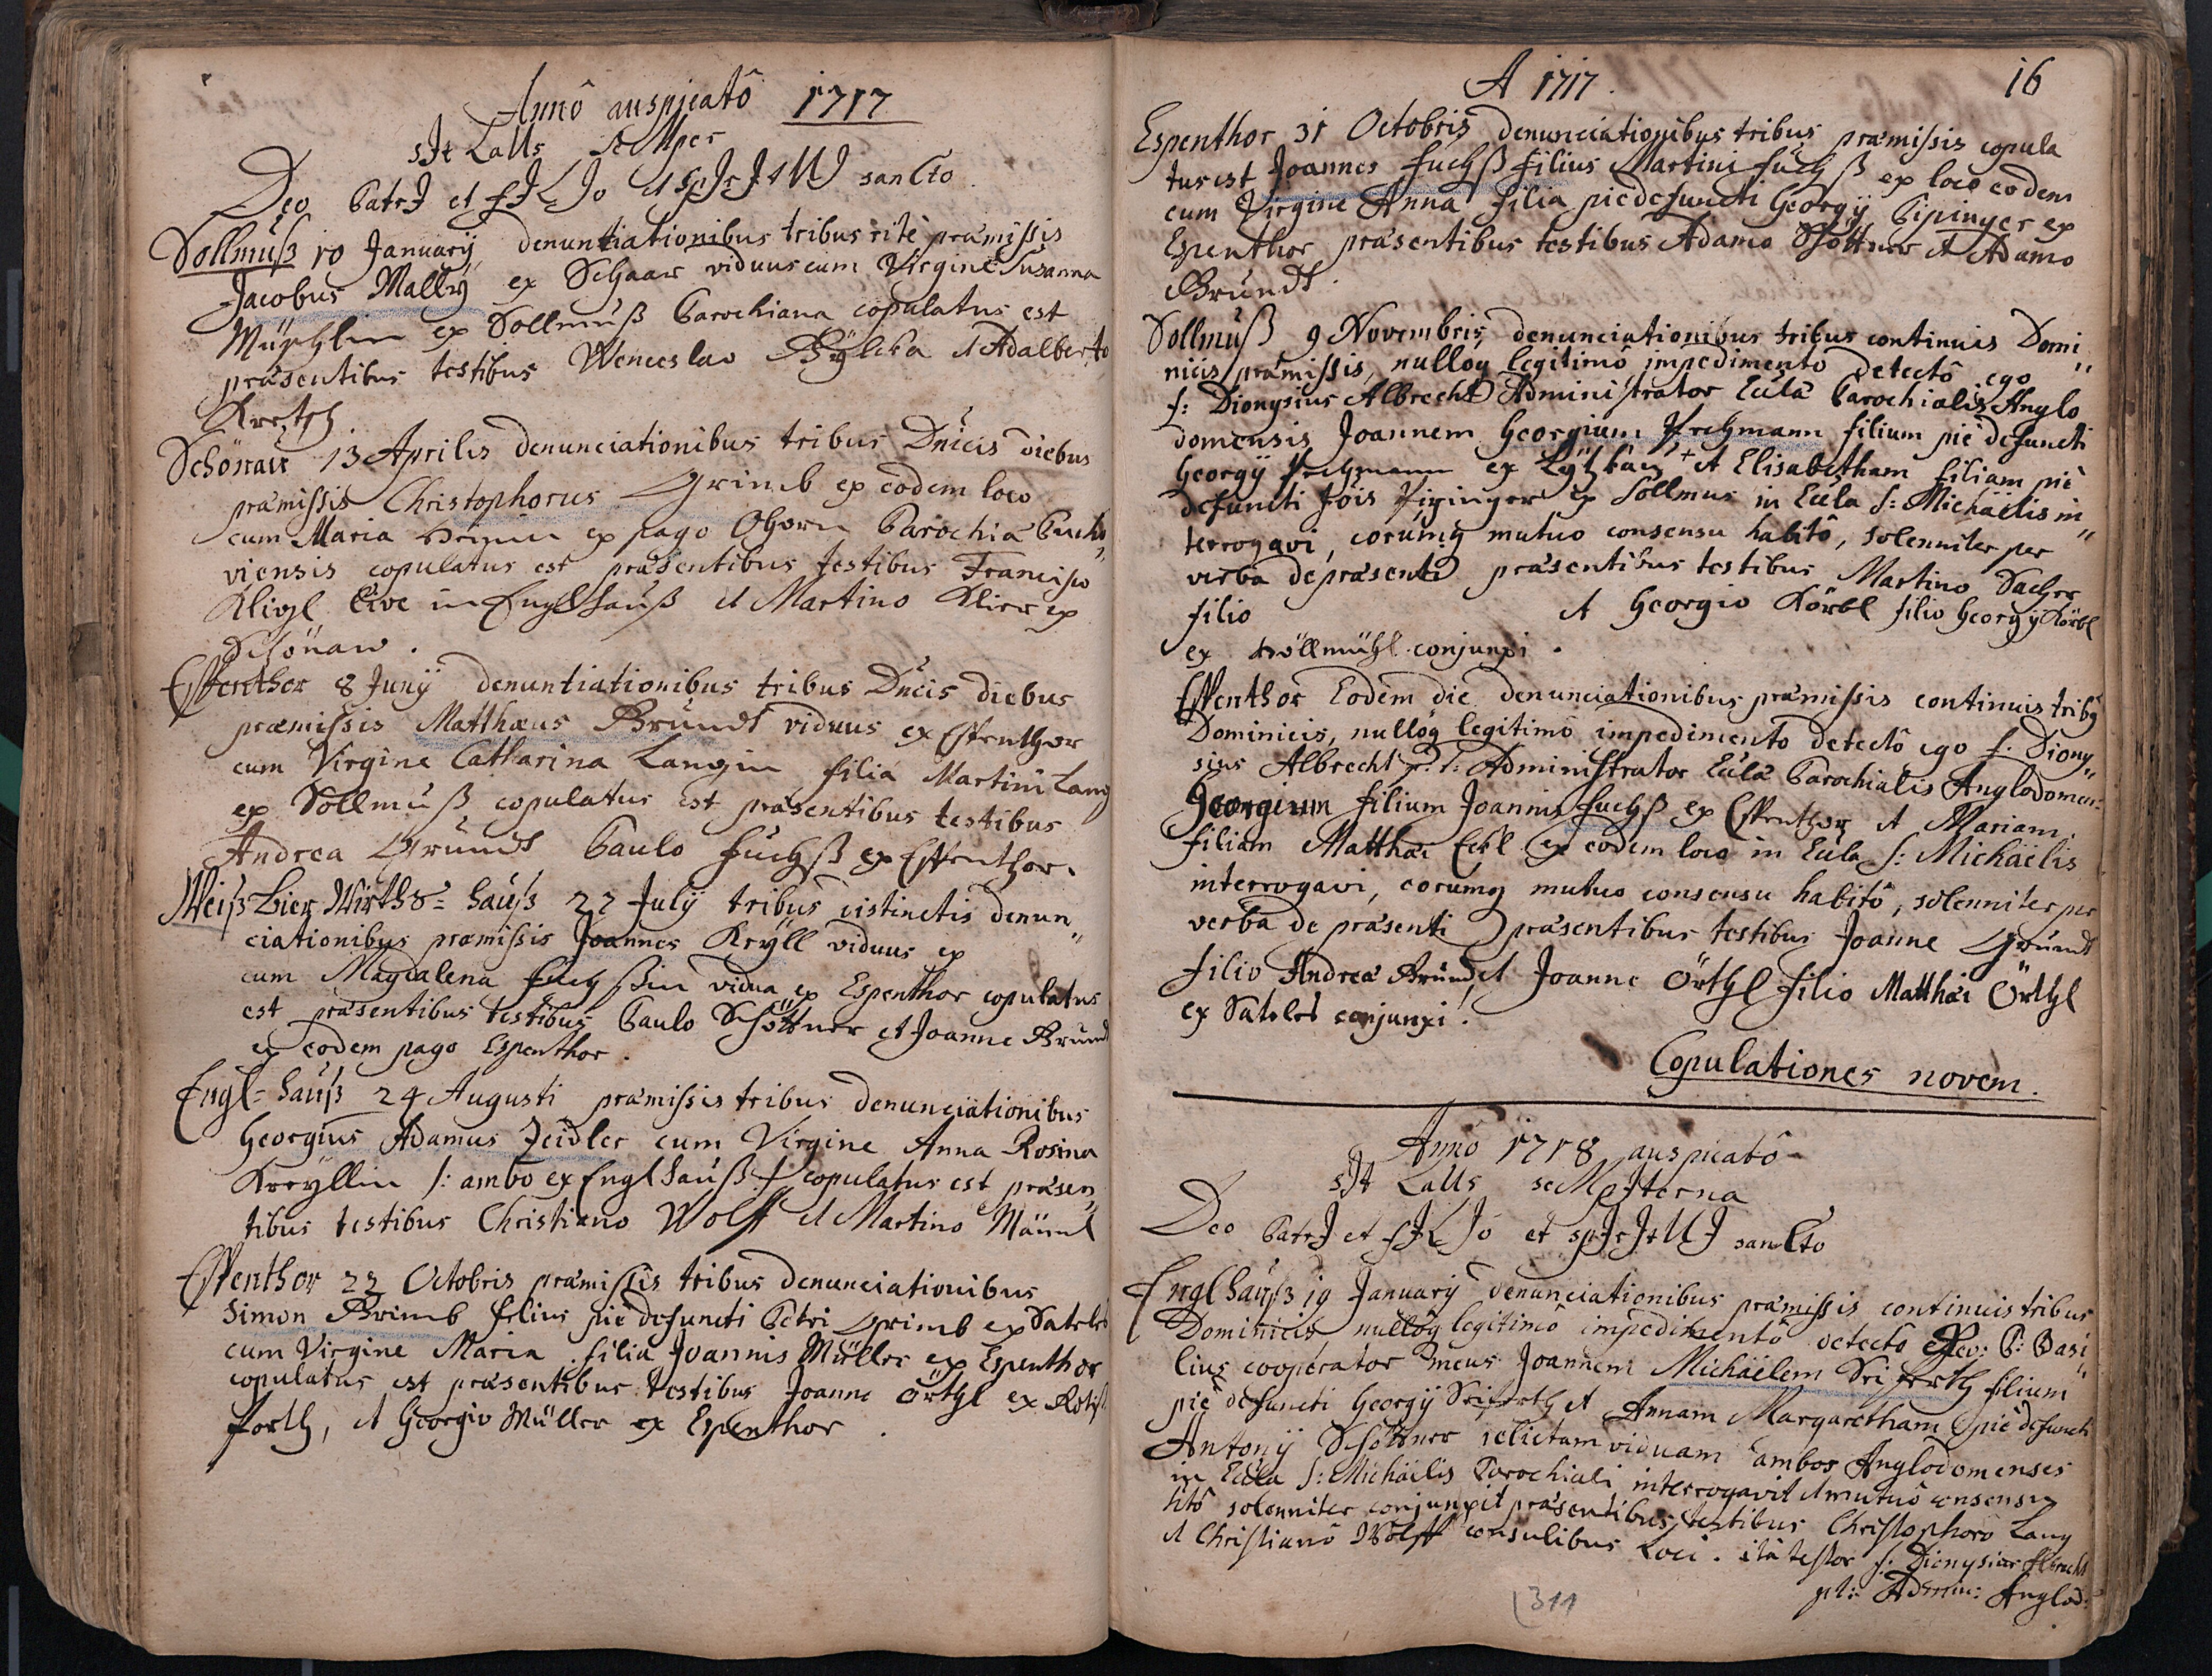 Annô auspicatô 1717
sIt LaUs seMper
Deo PatrI et fILIo et spIrItUI sanCto.
Sollmuß 10 January denuntiationibus tribus ritè præmissis
Jacobus Mallÿ ex Schaar viduus cum Virgine Susanna
ex Sollmuß Parochiana copulatus est
præsentibus testibus Wenceslao et Adalberto
Schönau 13 Aprilis denunciationibus tribus Dnicis diebus
præmissis Christophorus Grimb ex eodem loco
cum Maria ex pago Parochiæ Buch„
viensis copulatus est præsentibus testibus Francisco
Cive in Englhauß et Martino Klier ex
Schönaw.
Espenthor 8 Junÿ denuntiationibus tribus Dnicis diebus
præmissis Matthæus Brundt viduus ex Espenthor
cum Virgine Catharina Langin filia Martini Lang
ex Sollmuß copulatus est præsentibus testibus
Andrea Grundt Paulo Fuchß ex Espenthor.
Weiß Bier Wirths-hauß 27 Julÿ tribus distinctis denun„
ciationibus præmissis Joannes Krÿll viduus ex
cum Magdalena Fuchßin vidua ex Espenthor copulatus
est præsentibus testibus Paulo Schöttner et Joanne Brundt
ex eodem pago Espenthor.
Engl-hauß 24 Augusti præmissis tribus denunciationibus
Georgius Adamus Zeidler cum Virgine Anna Rosina
Kreyllin /: ambo ex Englhauß :/ copulatus est præsen„
tibus testibus Christiano Wolff et Martino
Espenthor 22 Octobris præmissis tribus denunciationibus
Simon Grimb filius piè defuncti Petri Grimb ex Sateles
cum Virgine Maria filia Joannis Müller ex Espenthor
copulatus est præsentibus testibus Joanne Örthl ex
forth, et Georgio Müller ex Espenthor.
A 1717. 16
Espenthor 31 Octobris denunciationibus tribus præmissis copula
tus est Joannes Fuchß filius Martini Fuchß ex loco eodem
cum Virgine Anna filia piè defuncti Georgÿ Pipinger ex
Espenthor præsentibus testibus Adamo Schöttner et Adamo
Brundt.
Sollmuß 9 Novembris, denunciationibus tribus continuis Domi„
nicis præmissis, nulloq legitimô impedimentô detectô ego
f: Dionysius Albrecht Administrator Eclæ Parochialis Anglo
domensis Joannem Georgium filium piè defuncti
Georgÿ ex + et Elisabetham filiam piè
defuncti Jois Pipinger ex Sollmus in Ecla S: Michaëlis in„
terrogavi, eorumq mutuo consensu habitô, solenniter per
verba de præsenti præsentibus testibus Martino Sacher
filio et Georgio Körbl filio Georgÿ Körbl
ex conjunxi.
Espenthor Eodem die denunciationibus præmissis continuis tribq
Dominicis, nulloq legitimô impedimentô detectô ego f. Diony„
sius Albrecht p. t: Administrator Eclæ Parochialis Anglodomen:
Georgium filium Joannis Fuchß ex Espenthor et Mariam
filiam Matthæi Eckl ex eodem loco in Ecla S: Michaëlis
interrogavi, eorumq mutuo consensu habitô, solenniter per
verba de præsenti præsentibus testibus Joanne Grundt
filio Andreæ Grund, et Joanne Örthl filio Matthæi Örthl
ex Sateles conjunxi.
Copulationes novem.
Annô 1718 auspicatô
sIt LaUs seMpIterna
Deo PatrI et fILIo et spIrItUI sanCto
Englhauß 19 January denunciationibus præmissis continuis tribus
Dominicis nulloq legitimô impedimentô detectô Rev: P: Basi„
lius cooperator meus Joannem Michaëlem Seiferth filium
piè defuncti Georgÿ Seiferth et Annam Margaretham piè defuncti
Antonÿ Schöttner relictam viduam ambos Anglodomenses
in Ecla S: Michaëlis Parochiali interrogavit et mutuô consensu
solenniter conjunxit præsentibus testibus Christophorô Lang
et Christianô Wolff consulibus Loci. ità testor f: Dionysius Albrecht
pt: Admin: Anglod:
311